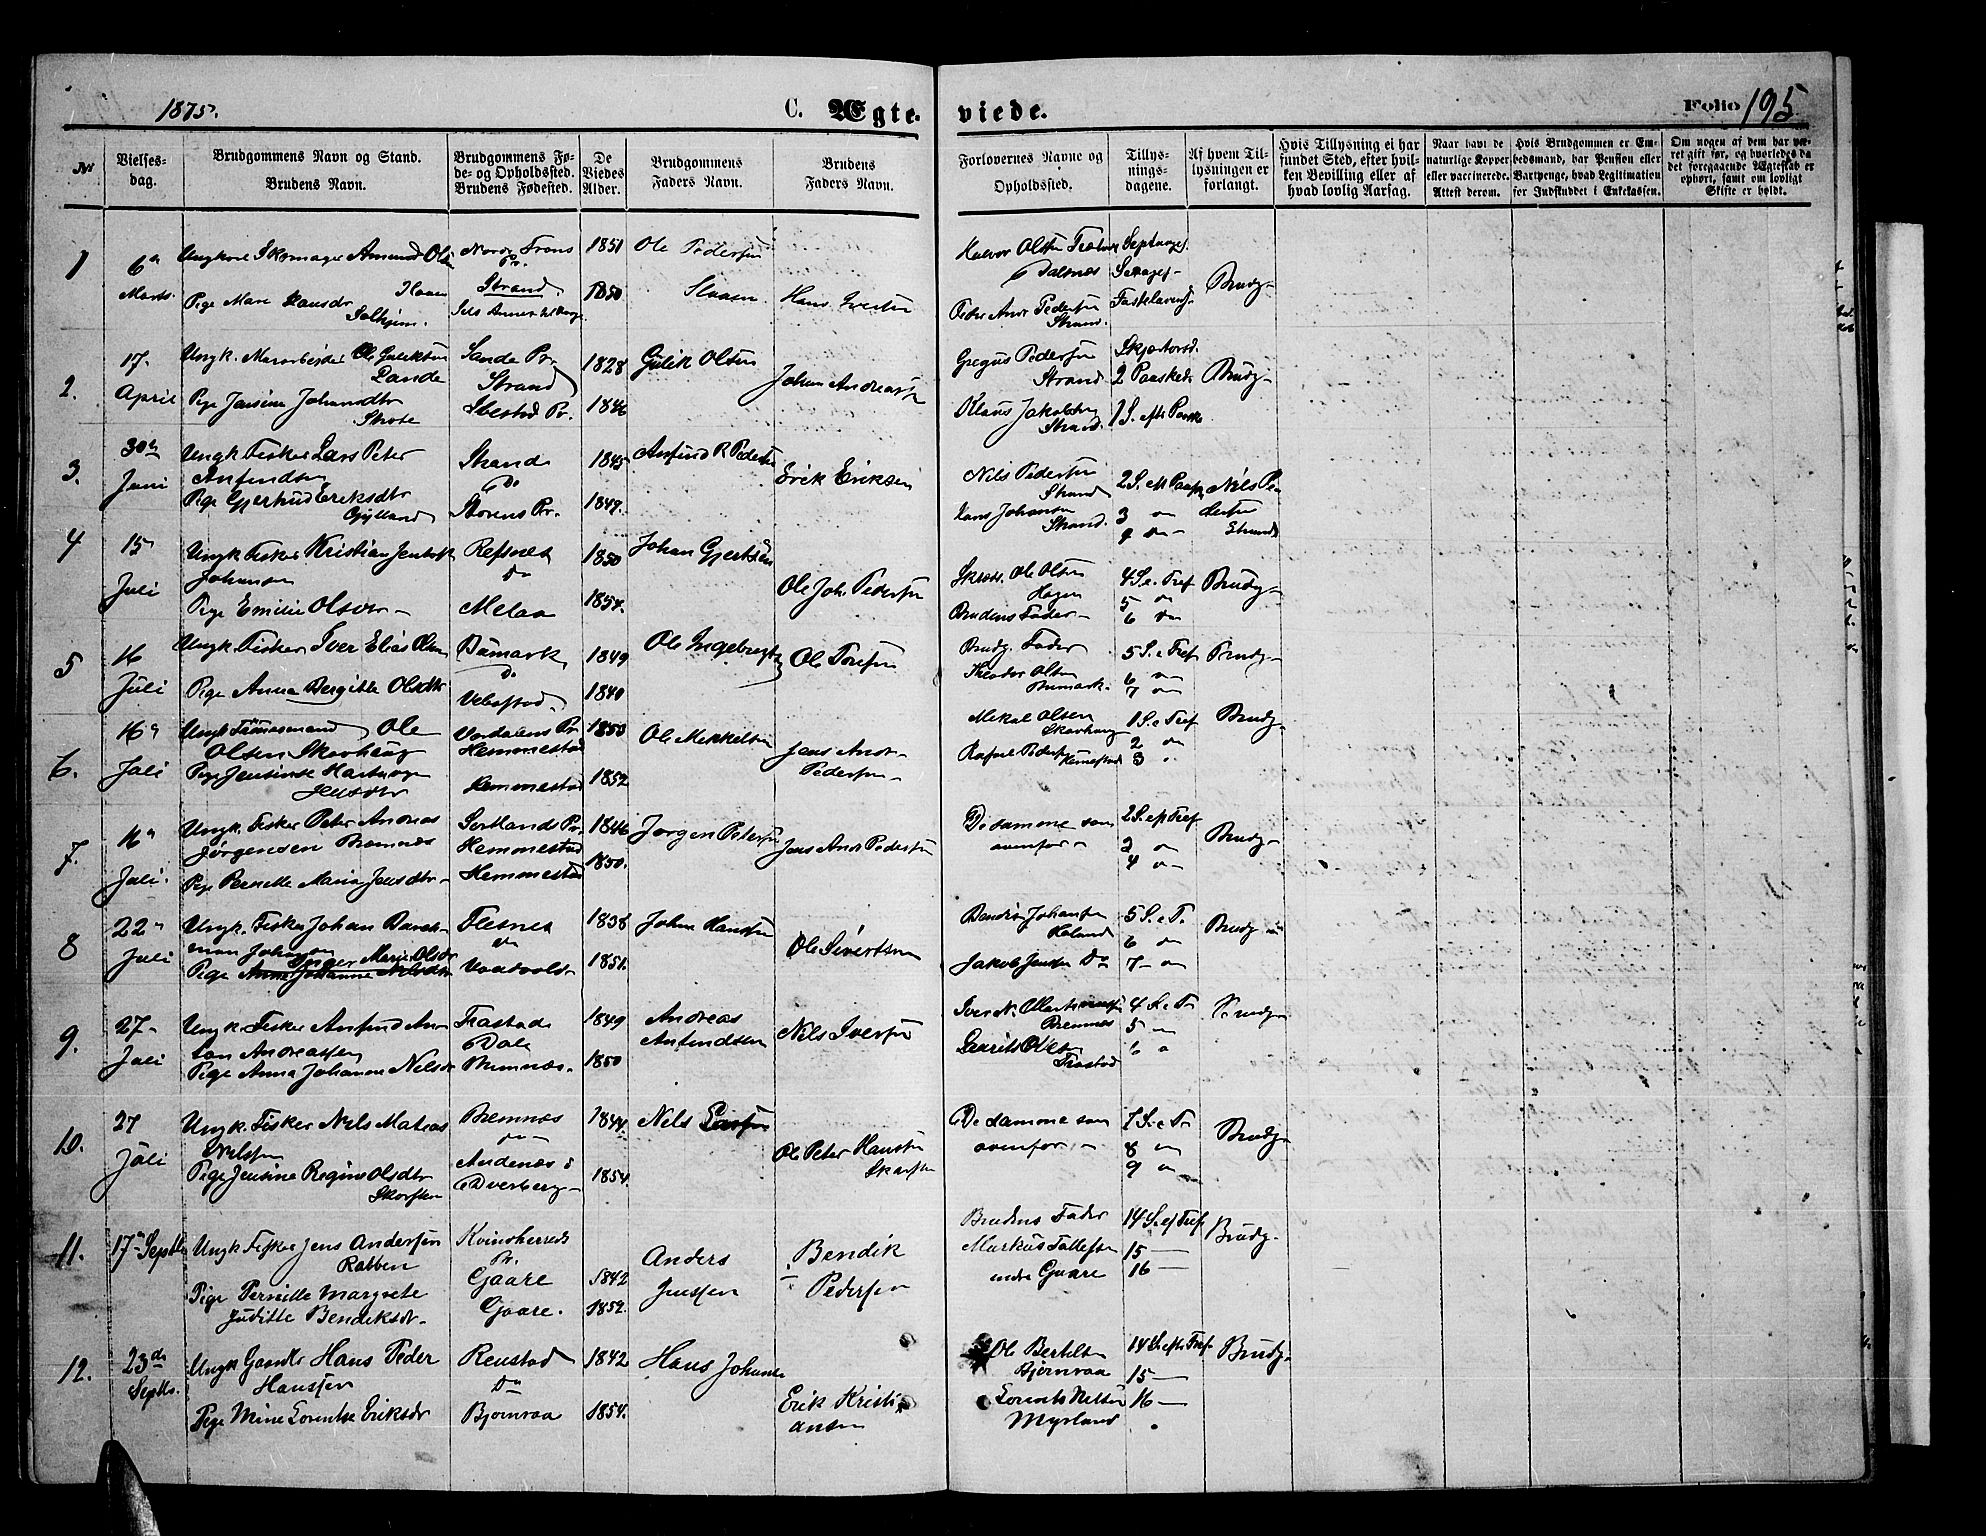 1875.
C. Ægte-
viede.
Folio 195
№
Vielses-
dag.
Brudgommens Navn og Stand.
Brudens Navn.
Brudgommens Fø-
de- og Opholdssted.
Brudens Fødested.
De
Viedes
Alder.
Brudgommens
Faders Navn.
Brudens
Faders Navn.
Forlovernes Navne og
Opholdssted.
Tillys-
nings-
dagene.
Af hvem Til-
lysningen er
forlangt.
Hvis Tillysning ei har
fundet Sted, efter hvil-
ken Bevilling eller af
hvad lovlig Aarsag.
Naar havt de
naturlige Kopper
eller vaccinerede.
Attest derom.
Hvis Brudgommen er Em-
bedsmand, har Pension eller
Vartpenge, hvad Legitimation
for Indskuddet i Enkekassen.
Om nogen af dem har væ-
ret gift før, og hvorledes da
det foregaaende Ægteskab er
ophørt, samt om lovligt
Skifte er holdt.
1
6
Marts
Ungkarl Skomager Amund Olsen
Pige Mare Hansdr
Solhjem.
Strand
1851
1850
Ole Pedersen
Hans Ivertsen
Halvor Olsen
Peder Andr Pedersen
Strand.
Septuages.
Sexages-
Fastelavens
Brudg-
2.
17.
April
Ungk. Ole Gulliksen
Lande
Pige Jensine Johansdtr
Sande Pr.
Strand
Ibestad Pr.
1828
1846
Gulik Olsen
Johan Andreassen
Gregus Pedersen
Strand
Klaus Jakobsen
Strand.
Skjærtorsd.
2 Paasked.
1 S. efter Paaske
Brudg-
3.
30te
Juni
Ungk Fisker Lars Peter
Anfindsen
Pige Gjertrud Eriksdtr
Strand
Do
Størens Pr.
1845
1847.
Anfind R Pedersen
Erik Eriksen
Nils Pedersen
Strand
Hans Johansen
Strand.
Nils Pe-
dersen
Strand
4
15
Juli
Ungk. Fisker Kristian
Johansen
Pige Emilie Olsdr-
Refsnes
Do
Melaa
1850
1854.
Johan Gjertsen
Ole Joh. Pedersen
Ole Olsen
Hagen
Brudens Fader-
4 S. e. Tref
5 "
6 "
Brudg-
5
16
Juli
Ungk. Fisker Iver Elias Olsen
Pige Anna Bergitte Olsdtr
Bumark
Do
1849
1849
Ole Ingebrigtsen
Ole Torsen
Brudg. Fader
Olsen
Bumark.
5 S. e Tref
6 "
7 "
Brudg-
6.
16
Juli
Ungk Tømmermand Ole
Olsen Skavhaug
Pige Jensine
Jensdtr
Værdalens Pr.
Hemmestad
Hemmestad
1850
1852
Ole Mikkelsen
Jens Andr-
Pedersen-
Mikal Olsen
Skavhaug
1 S. e Tref
2 "
3 "
Brudg-
7.
16
Juli.
Ungk. Fisker Peter Andreas
Jørgensen Bremnes
Pige Pernille Maria Jensdtr-
Sortlands Pr.
Hemmestad
Hemmestad
1846
1850.
Jørgen Petersen
Jens Andr Pedersen
De samme som
ovenfor-
2 S. ef Tref
3 "
4 "
Brudg-
8
22
Juli
Ungk. Fisker Johan
Johansen
Pige Inger Marie Olsdr
Anna Johanna Nilsdtr
Flesnes
1838
1851.
Johan Hansen
Ole Sivertsen
Johansen
Jakob Jensen Do
5 S. e T.
6 "
7 - "
Brudg
9.
27
Juli
Ungk. Fisker Anfind An-
ton Andreassen
Pige Anna Johanna Nilsdr
Trastad
Dale
Bremnes.
1849
1850
Andreas
Anfindsen
Nils Iversen
Bremnes
Laurits Olsen
Trastad
4 S. e T.
5 "
6 "
Brudg-
10.
27
Juli
Ungk. Fisker Nils Matias
Nilsen
Pige Jensine Regine Olsdtr
Skarsten
Bremnes
Andenæs i
Dverberg-
1844.
1854.
Nils
Ole Peter Hansen
Skarsten
De samme som
ovenfor-
7 S. e T
8 "
9 "
Brudg-
11.
17 Septbr
Ungk Fisker Jens Andersen
Rabben
Pige Pernille Margrete
Juditte Bendiksdr-
Kvindherreds
Pr.
Gaare
Gaare.
1842
1852.
Anders
Jenssen
Bendik
Pedersen
Brudens Fader
Markus Tollefsen
indre Gaare
14 S. ef Tref
15 —
16 —
Brudg.
12.
23de
Septbr.
Ungk Hans Peder
Hanssen
Pige Mine Lorentse Eriksdr
Renstad
Do
Bjørnraa
1842
1854.
Hans Johansen
Erik Kristi-
ansen
Ole Bertelsen
Bjørnraa
Lorents Nilsen
Myrland
14 S. eft. Tref
15 —
16 —
Brudg-